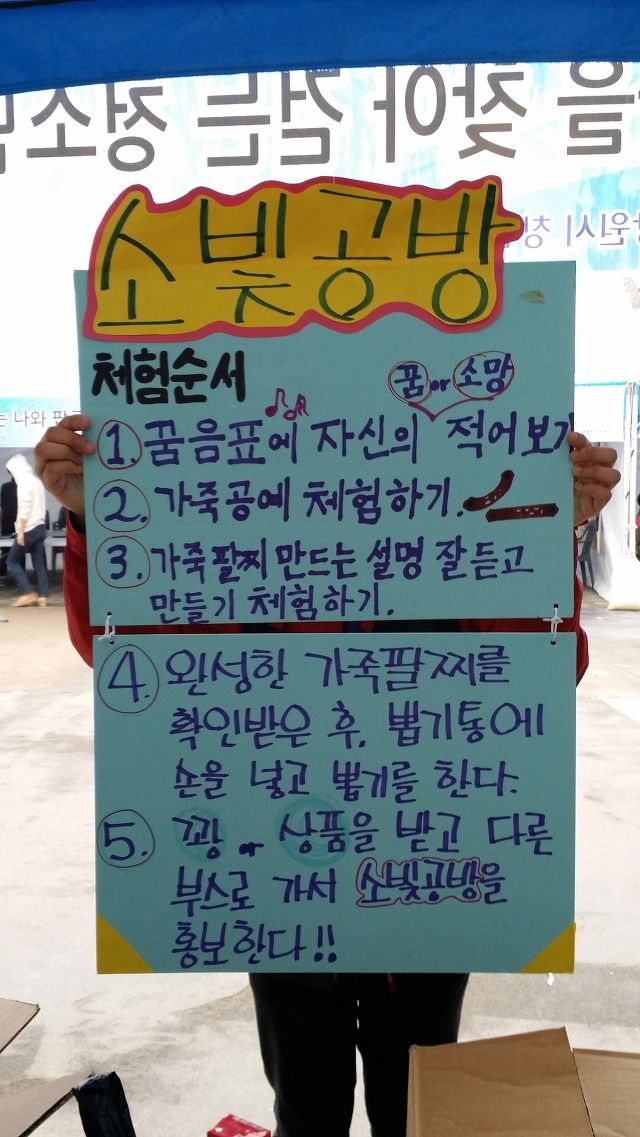 을 찾아 걷는 청소년
창원시 청
는 나와
소빛공방
체험순서
꿈 or 소망
1. 꿈음표에 자신의 적어보기
2. 가죽공예 체험하기.
3. 가죽팔찌 만드는 설명 잘 듣고
만들기 체험하기.
4. 완성한 가죽팔찌를
확인받은 후, 뽑기통에
손을 넣고 뽑기를 한다.
5. 꽝 or 상품을 받고 다른
부스로 가서 소빛공방을
홍보한다!!